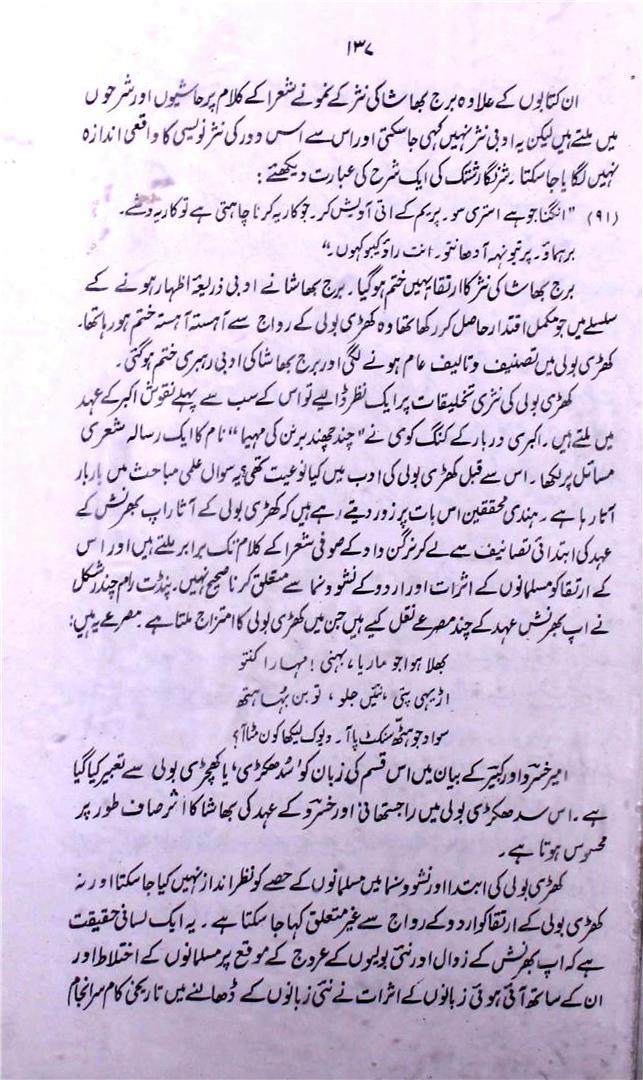 ۱۳۷
ان کتابوں کے علاوہ برج بھاشا کی نثر کے نمونے شعرا کے کلام پر حاشیوں اور شرحوں
میں ملتے ہیں لیکن یہ ادبی نثر نہیں کہی جا سکتی اور اس سے اس دور کی نثر نویسی کا واقعی اندازہ
نہیں لگایا جا سکتا۔ شرنگار شتک کی ایک شرح کی عبارت دیکھئے:
(۹۱) "انگنا جو ہے استری سو۔ پریم کے اتی آویش کر۔ جو کاریہ کرنا چاہتی ہے تو کاریہ وشے۔
برہماؤ۔ پرتیو نہہ آدھانتو۔ انت راؤ کیو کہوں۔"
برج بھاشا کی نثر کا ارتقا یہیں ختم ہو گیا۔ برج بھاشا نے ادبی ذریعۂ اظہار ہونے کے
سلسلے میں جو مکمل اقتدار حاصل کر رکھا تھا وہ کھڑی بولی کے رواج سے آہستہ آہستہ ختم ہو رہا تھا۔
کھڑی بولی میں تصنیف و تالیف عام ہونے لگی اور برج بھاشا کی ادبی رہبری ختم ہو گئی۔
کھڑی بولی کی نثری تخلیقات پر ایک نظر ڈالیے تو اس کے سب سے پہلے نقوش اکبر کے عہد
میں ملتے ہیں۔ اکبری دربار کے گنگ کوی نے "چند چھند برنن کی مہیما" نام کا ایک رسالہ شعری
مسائل پر لکھا۔ اس سے قبل کھڑی بولی کی ادب میں کیا نوعیت تھی؟ یہ سوال علمی مباحث میں بار بار
آتا رہا ہے۔ ہندی محققین اس بات پر زور دیتے رہے ہیں کہ کھڑی بولی کے آثار اپ بھرنش کے
عہد کی ابتدائی تصانیف سے لے کر نرگن واد کے صوفی شعرا کے کلام تک برابر ملتے ہیں اور اس
کے ارتقا کو مسلمانوں کے اثرات اور اردو کے نشو و نما سے متعلق کرنا صحیح نہیں۔ پنڈت رام چندر شکل
نے اپ بھرنش عہد کے چند مصرعے نقل کیے ہیں جن میں کھڑی بولی کا امتزاج ملتا ہے مصرعے یہ ہیں:
بھلا ہوا جو ماریا، بہنی! مہارا کنتو
اڑیہی پتی، نتیں جلو، تو بن بہا ہتھ
سوا دجو ہتھ سنکٹ پاآ۔ دیوک لیکھا کون مٹاآ؟
امیر خسرو اور کبیر کے بیان میں اس قسم کی زبان کو 'سدھکڑی' یا کھچڑی بولی سے تعبیر کیا گیا
ہے۔ اس سدھکڑی بولی میں راجستھانی اور خسرو کے عہد کی بھاشا کا اثر صاف طور پر
محسوس ہوتا ہے۔
کھڑی بولی کی ابتدا اور نشو و نما میں مسلمانوں کے حصے کو نظر انداز نہیں کیا جا سکتا اور نہ
کھڑی بولی کے ارتقا کو اردو کے رواج سے غیر متعلق کہا جا سکتا ہے۔ یہ ایک لسانی حقیقت
ہے کہ اپ بھرنش کے زوال اور نئی بولیوں کے عروج کے موقع پر مسلمانوں کے اختلاط اور
ان کے ساتھ آئی ہوئی زبانوں کے اثرات نے نئی زبانوں کے ڈھالنے میں تاریخی کام سرانجام